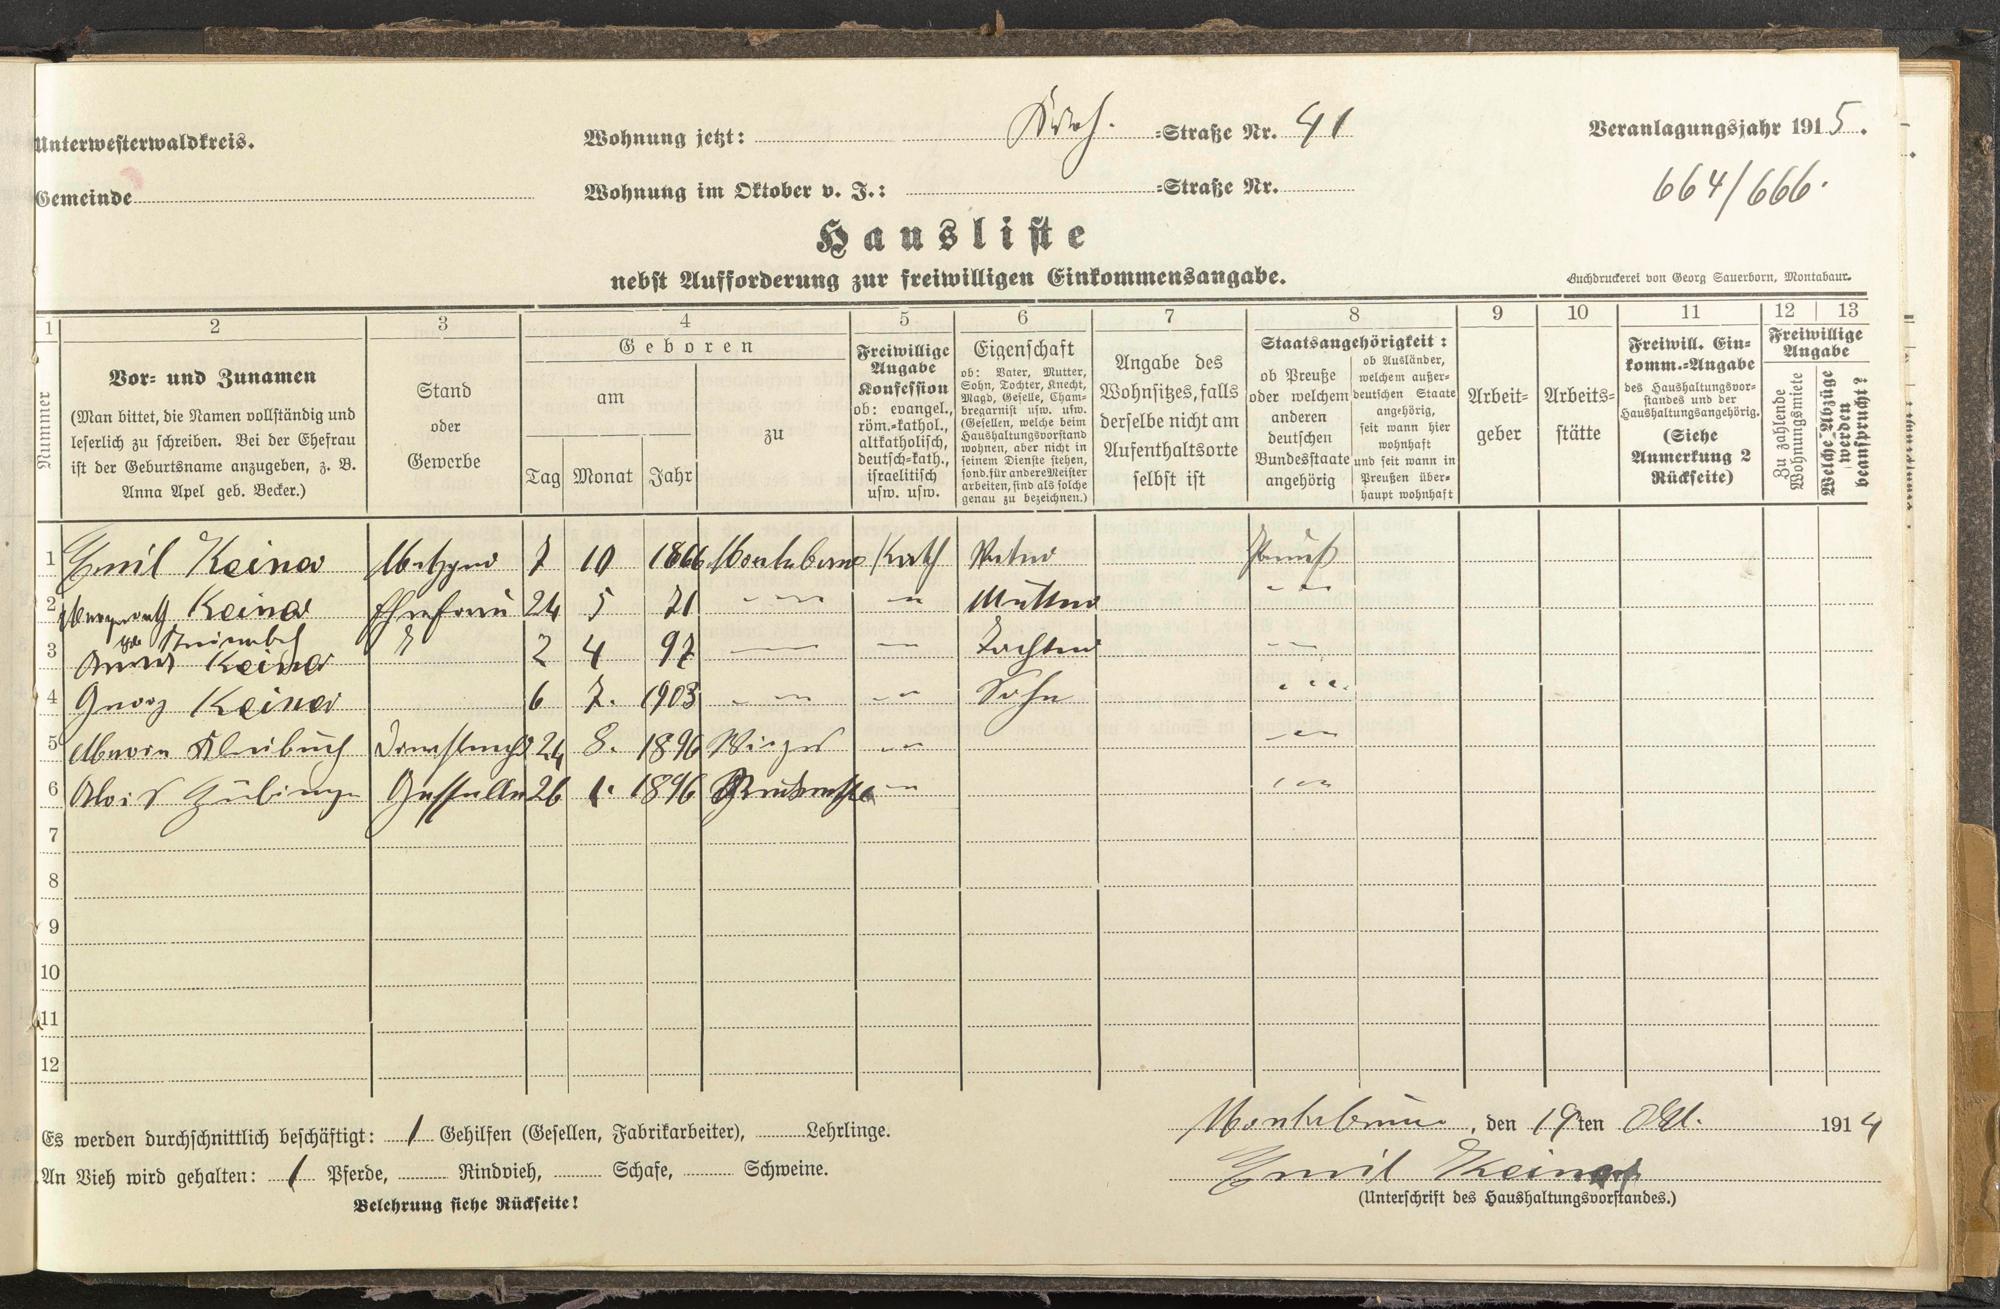 Unterwesterwaldkreis.
Gemeinde
Wohnung jetzt: =Straße Nr. 41
Wohnung im Oktober v. J.: =Straße Nr.
Veranlagungsjahr 1915.
664/666.
Hausliste
nebst Aufforderung zur freiwilligen Einkommensangabe.
Buchdruckerei von Georg Sauerborn, Montabaur.
1 2 3 4 5. 6 7 8 9 10 11 12 13
Nummer
Vor- und Zunamen
(Man bittet, die Namen vollständig und
leserlich zu schreiben. Bei der Ehefrau
ist der Geburtsname anzugeben, z. B.
Anna Apel geb. Becker.)
Stand
oder
Gewerbe
Geboren
am
zu
Tag Monat Jahr
Freiwillige
Angabe
Konfession
ob: evangel.,
röm.=kathol.,
altkatholisch,
deutsch=kath.,
israelitisch
usw. usw.
Eigenschaft
ob: Vater, Mutter,
Sohn, Tochter, Knecht,
Magd, Geselle, Cham-
bregarnist usw. usw.
(Gesellen, welche beim
Haushaltungsvorstand
wohnen, aber nicht in
seinem Dienste stehen,
sond. für andere Meister
arbeiten, sind als solche
genau zu bezeichnen.)
Angabe des
Wohnsitzes, falls
derselbe nicht am
Aufenthaltsorte
selbst ist
Staatsangehörigkeit:
ob Preuße
oder welchem
anderen
deutschen
Bundesstaate
angehörig
ob Ausländer,
welchem außer-
deutschen Staate
angehörig,
seit wann hier
wohnhaft
und seit wann in
Preußen über-
haupt wohnhaft
Arbeit-
geber
Arbeits-
stätte
Freiwill. Ein-
komm.-Angabe
des Haushaltungsvor-
standes und der
Haushaltungsangehörig.
(Siehe
Anmerkung 2
Rückseite)
Freiwillige
Angabe
Zu zahlende
Wohnungsmiete
Welche Abzüge
werden
beansprucht?
1 Emil Keiner Metzger 7 10 1866 Montabaur Kath Vater Preuß
2 Margareth Keiner Ehefrau 24 5 71 - " - - " - Mutter - " -
geb
3 Anna Keiner 2 4 97 - " - - " - Tochter - " -
4 Georg Keiner 6 7. 1903 - " - - " - Sohn - " -
5 Maria 24 8. 1896 Wirges - " - - " -
6 Alois 26 1. 1896 - " - - " -
7
8
9
10
11
12
Es werden durchschnittlich beschäftigt: 1 Gehilfen (Gesellen, Fabrikarbeiter), Lehrlinge.
An Vieh wird gehalten: 1 Pferde, Rindvieh, Schafe, Schweine.
Belehrung siehe Rückseite!
Montabaur, den 19ten Okt. 1914
Emil Keiner
(Unterschrift des Haushaltungsvorstandes.)